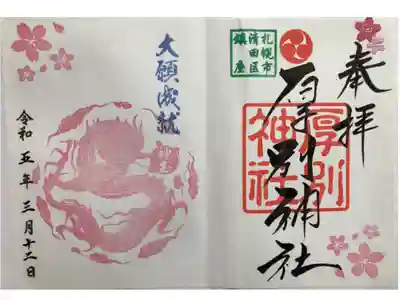 奉拝
札幌市
清田区
鎮座
厚別神社
厚別
神社
大願成就
令和五年三月十二日